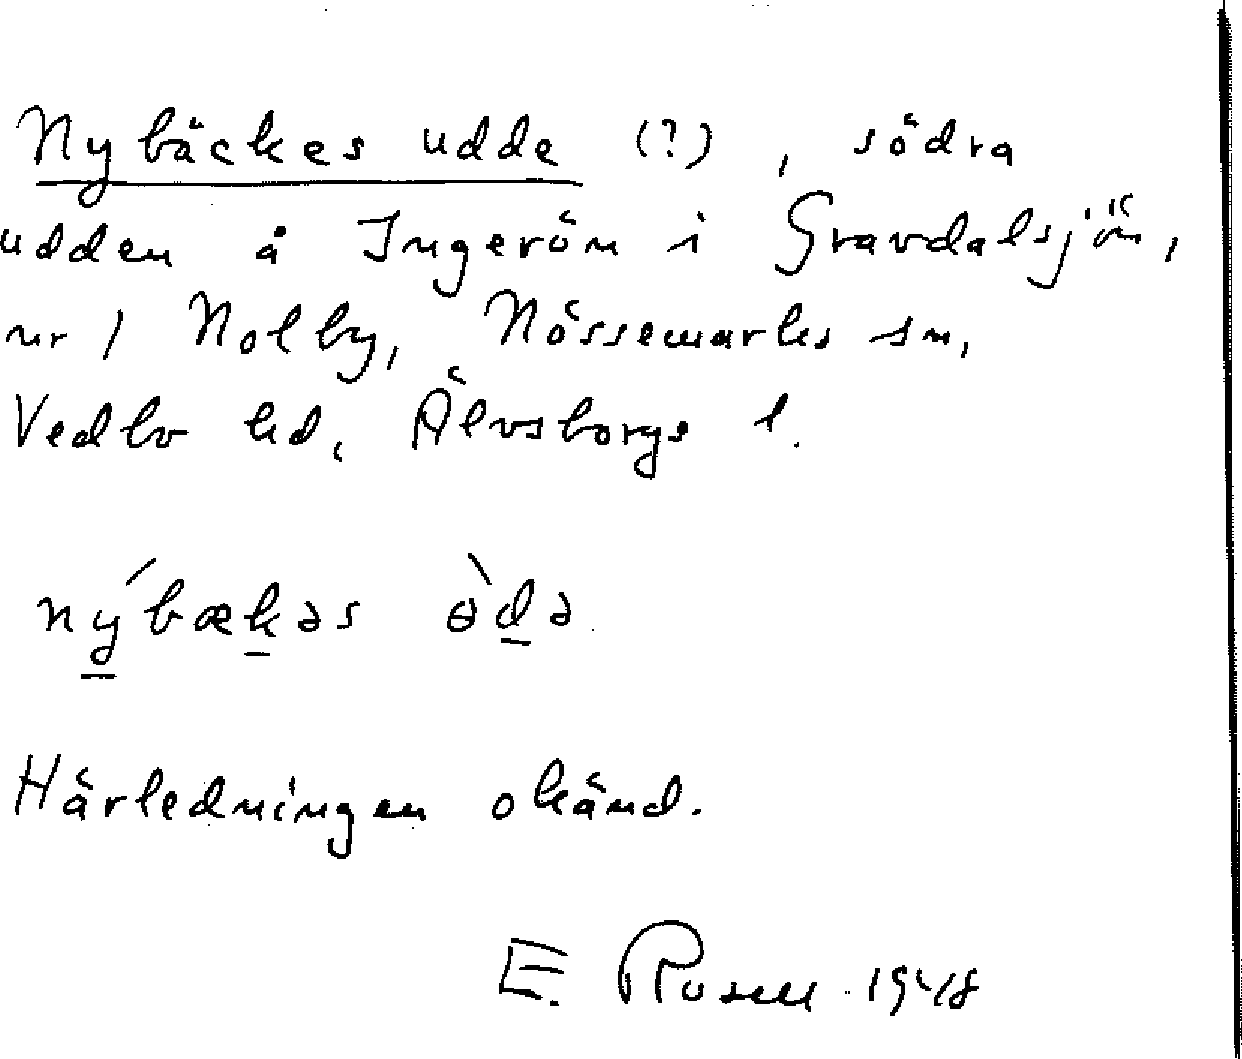 Nybäckes udde (?), södra
udden å Ingerön i Gravdalsjön,
nr 1 Nolby, Nössemarks sn,
Vedbo hd, Älvsborgs l.
nýbækəs ɵ̀də.
Härledningen okänd.
E. Rosell 1948